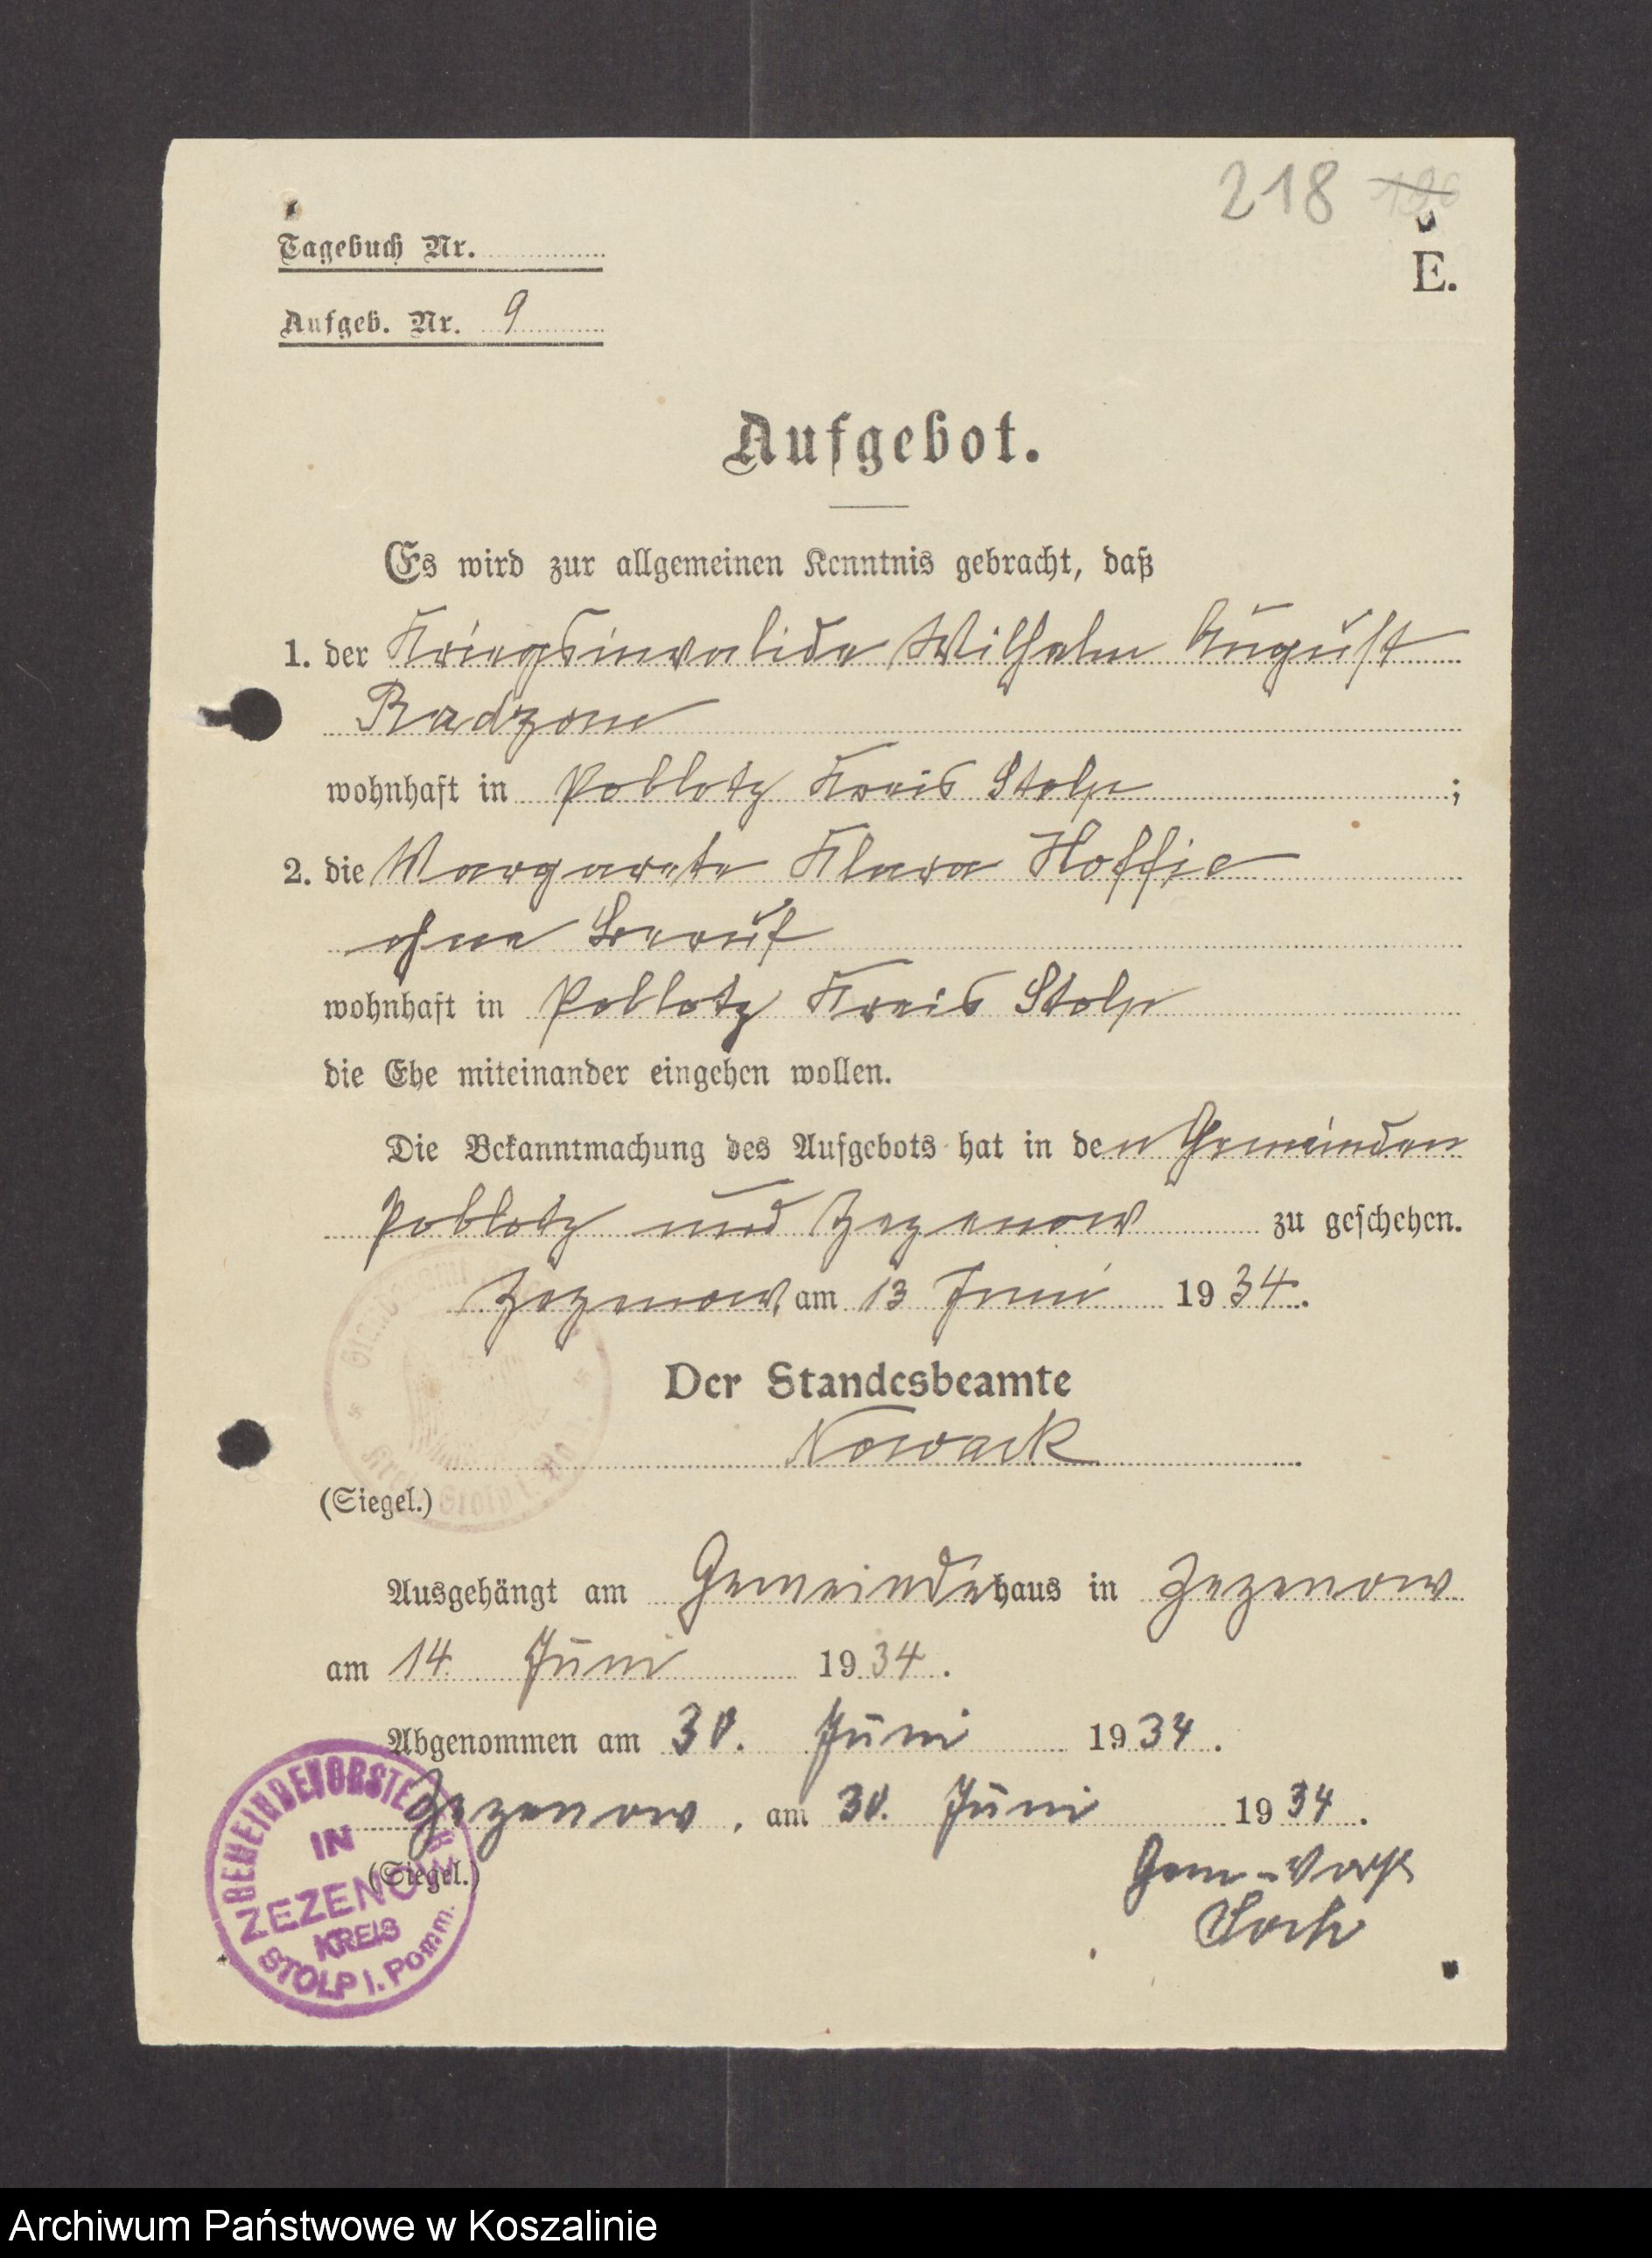 218
Tagebuch Nr.
E.
Aufgeb. Nr. 9
Aufgebot.
Es wird zur allgemeinen Kenntnis gebracht, daß
1. der Kriegsinvalide Wilhelm August
Radzom
wohnhaft in Poblotz Kreis Stolp ;
2. die Margarete Klara Hoffie
ohne Beruf
wohnhaft in Poblotz Kreis Stolp
die Ehe miteinander eingehen wollen.
Die Bekanntmachung des Aufgebots hat in den Gemeinden
Poblotz und Zezenow zu geschehen.
Zezenow, am 13 Juni 1934.
Der Standesbeamte
Nowack
(Siegel.)
Ausgehängt am Gemeindehaus in Zezenow
am 14. Juni 1934.
Abgenommen am 30. Juni 1934.
Zezenow, am 30. Juni 1934.
(Siegel.)
Gem-Vorst
GEMEINDEVORSTEHER
IN
ZEZENOW
KREIS
STOLP i. Pomm.
Archiwum Państwowe w Koszalinie